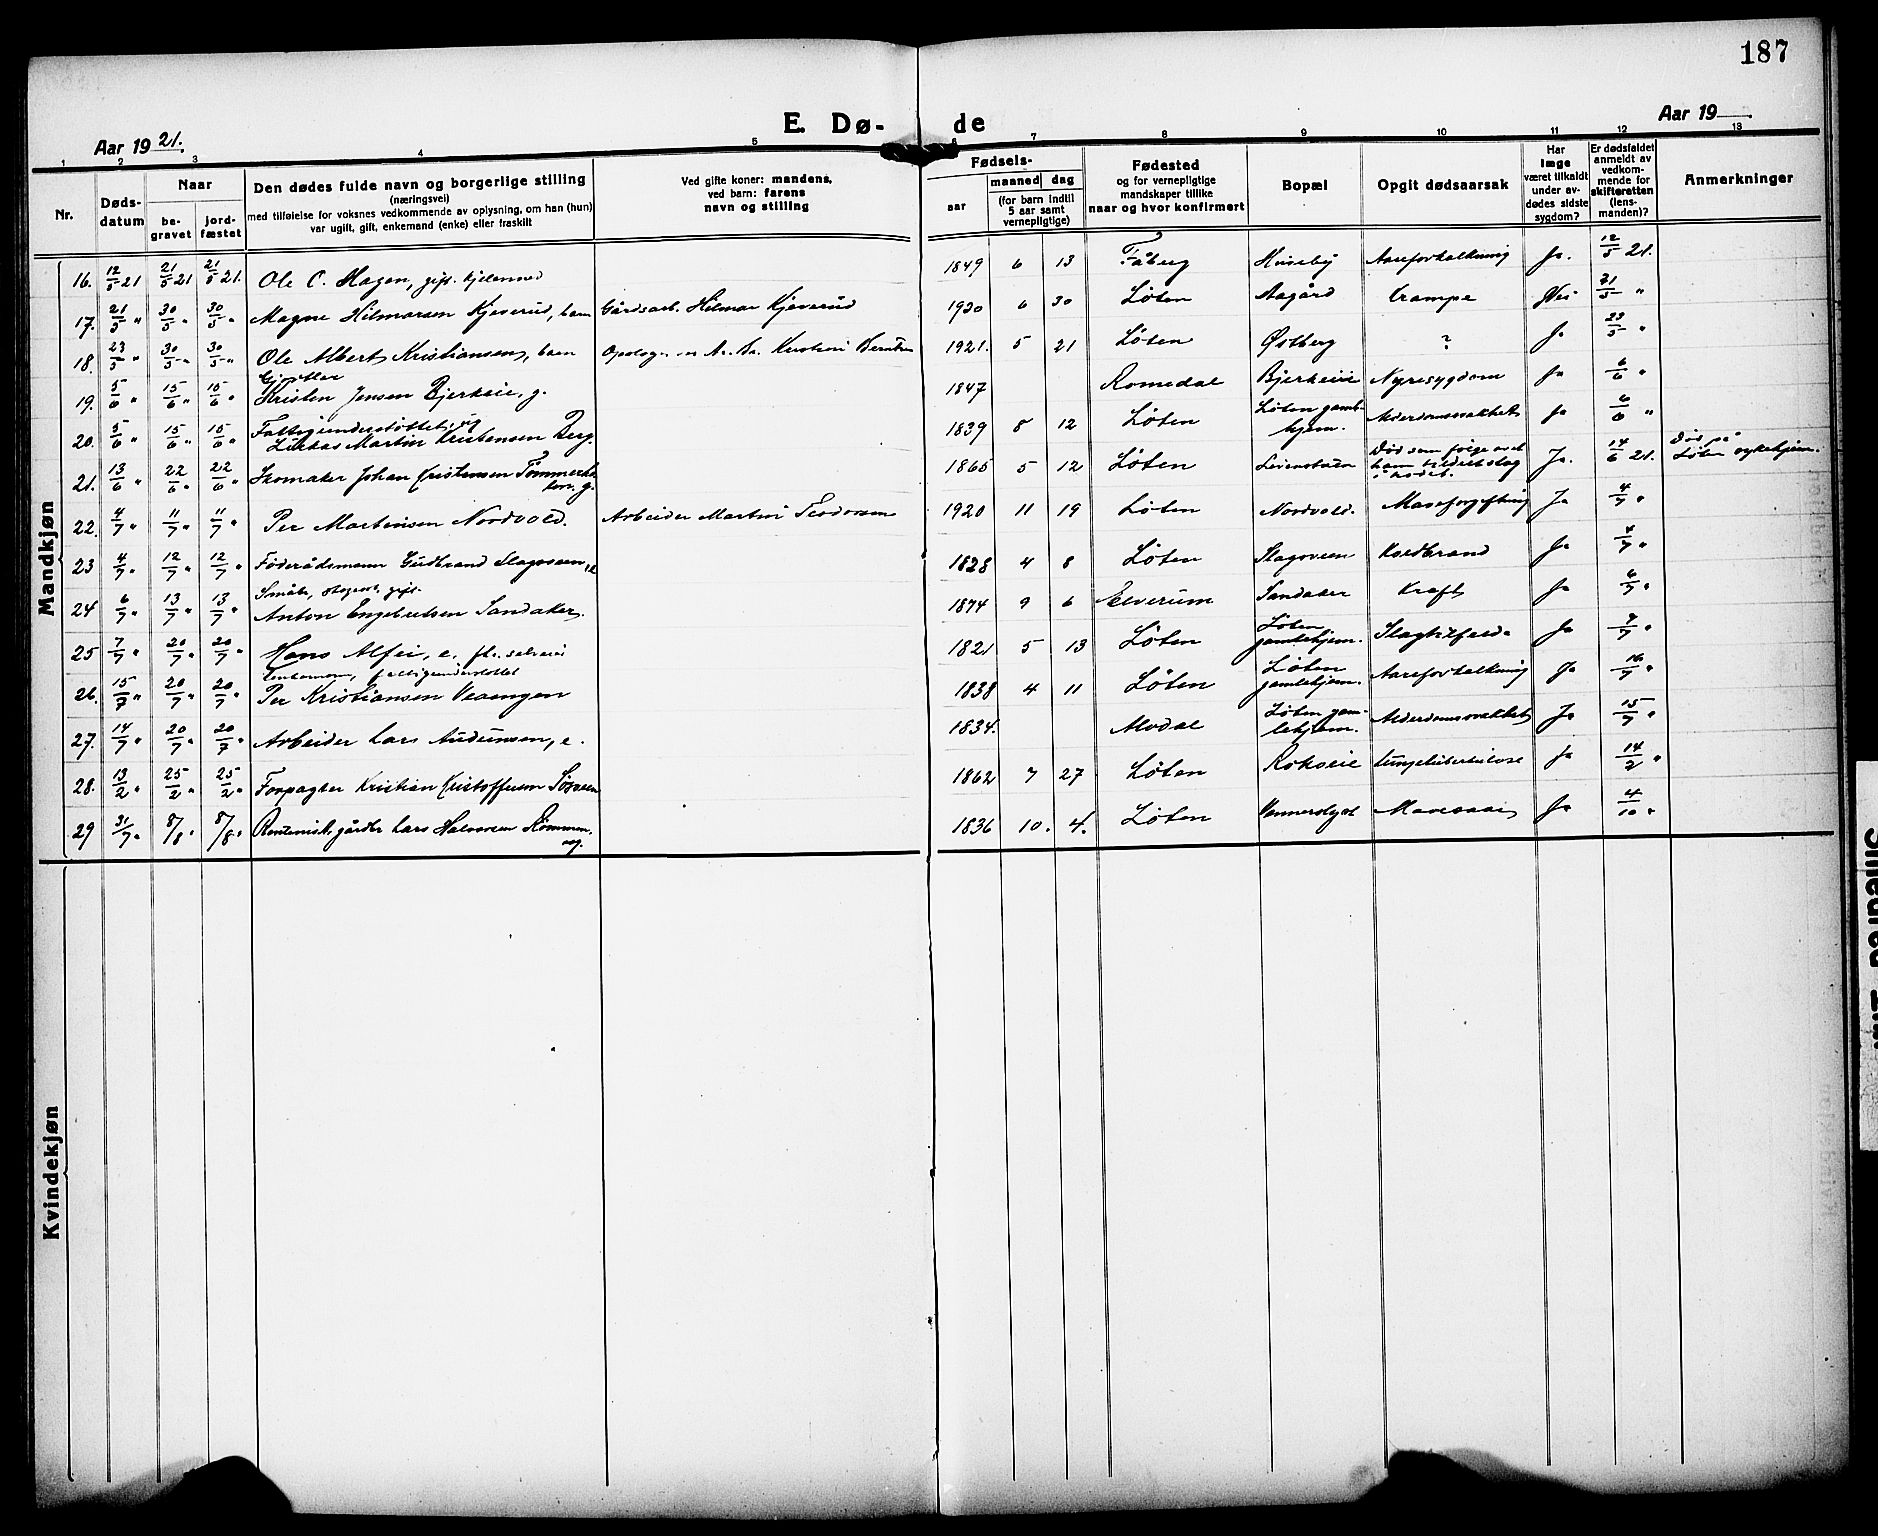 187
E. Dø- de
Aar 19 21.
Aar 19
1 2 3 4 5 6 7 8 9 10 11 12 13
Nr.
Døds-datum
Naar
be-gravet
jord-fæstet
Den dødes fulde navn og borgerlige stilling
(næringsvei)
med tilføielse for voksnes vedkommende av oplysning, om han (hun)
var ugift, gift, enkemand (enke) eller fraskilt
Ved gifte koner: mandens,
ved barn: farens
navn og stilling
Fødsels-
aar
maaned dag
(for barn indtil
5 aar samt
vernepligtige)
Fødested
og for vernepligtige
mandskaper tillike
naar og hvor konfirmert
Bopæl
Opgit dødsaarsak
Har
læge
været tilkaldt
under av-
dødes sidste
sygdom?
Er dødsfaldet
anmeldt av
vedkom-
mende for
skifteretten
(lens-
manden)?
Anmerkninger
Mandkjøn
16. 12/5 21 21/5 21 21/5 21. Ole C. Hagen, gift. 1849 6 13 Fåberg Huseby Aareforkalkning Ja. 12/5 21.
17. 21/5 " 30/5 " 30/5 " Magne Hilmarsen Kjeverud, barn Gårdsarb. Hilmar Kjeverud 1920 6 30 Løten Aagård Krampe Nei 21/5 "
18. 23/5 " 30/5 " 30/5 " Ole Albert Kristiansen, barn 1921. 5 21 Løten Østberg ? Ja 23/5 "
19. 5/6 " 15/6 " 15/6 " Kristen Jensen Bjerkeie, g. 1847 Romedal Bjerkeie Nyresygdom Ja 6/6 "
20. 5/6 " 15/6 " 15/6 " Fattigunderstøttet
Lukas Martin Kristensen Berg. 1839 8 12 Løten Løten gamle-
hjem. Alderdomssvakhet Ja 6/6 "
21. 13/6 " 22/6 " 22/6 " Skomaker Johan Kristensen g. 1865 5 12 Løten Død som følge av et
ham tildelt slag
i hodet. Ja. 14/6 21. Død på
Løten sykehjem.
22. 4/7 " 11/7 " 11/7 " Per Martinsen Nordvold. Arbeider Martin Teodorsen 1920 11 19 Løten Nordvold. Maveforgiftning Ja 4/7 "
23 4/7 " 12/7 " 12/7 " Føderådsmann Gudbrand Slagsveen, e 1828 4 8 Løten Slagsveen Koldbrand Ja 4/7 "
24 6/7 " 13/7 " 13/7 " Småbr, gift.
Anton Engebretsen Sandaker. 1874 9 6 Elverum Sandaker Kræft Ja 6/7 "
25 7/7 " 20/7 " 20/7 " Hans Alfei, e. 1821 5 13 Løten Løten
gamlehjem. Slagtilfælde Ja 7/7 "
26. 15/7 " 20/7 " 20/7 " fattigunderstøttet
Per Kristiansen Veaengen 1838 4 11 Løten Løten
gamlehjem. Aareforkalkning Ja 16/7 "
27. 14/7 " 20/7 " 20/7 " Arbeider Lars Audunsen, e. 1834. Alvdal Løten gam-
lehjem. Alderdomssvakhet Ja 15/7 "
28. 13/2 " 25/2 " 25/2 " Forpagter Kristian Kristoffersen 1862 7 27 Løten Rokseie Lungetuberkulose Ja 14/2 "
29 31/7 " 8/8 " 8/8 " gårdbr Lars Halvorsen Rømmen. 1836 10. 4. Løten Mavesaar Ja 4/10 "
Kvindekjøn